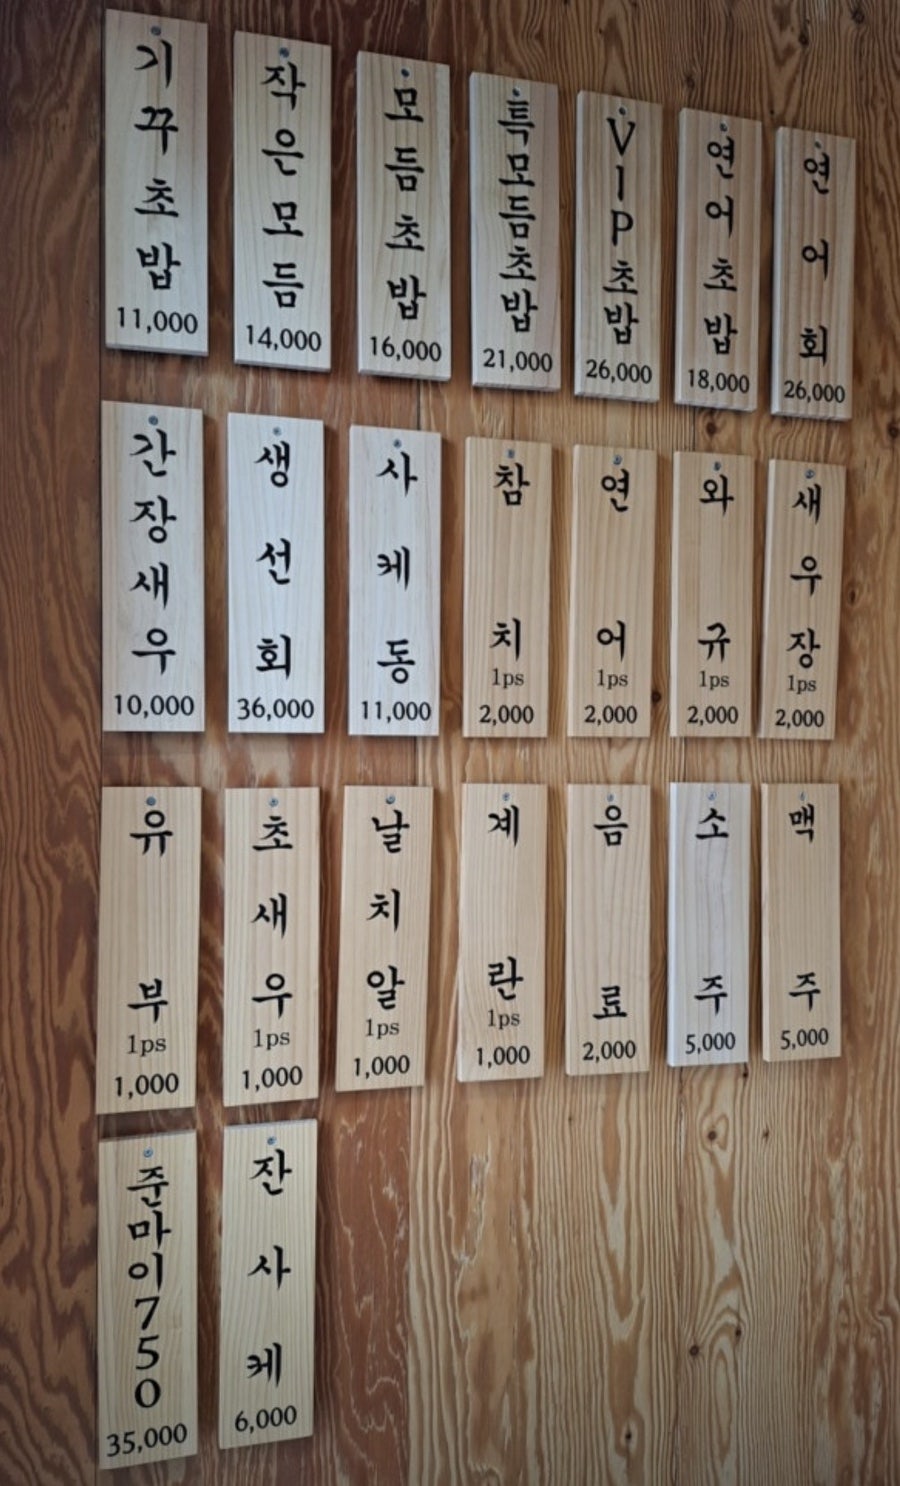 기꾸초밥
11,000
작은모듬
14,000
모듬초밥
16,000
특모듬초밥
21,000
VIP초밥
26,000
연어초밥
18,000
연어회
26,000
간장새우
10,000
생선회
36,000
사케동
11,000
참치
1ps
2,000
연어
1ps
2,000
와규
1ps
2,000
새우장
1ps
2,000
유부
1ps
1,000
초새우
1ps
1,000
날치알
1ps
1,000
계란
1ps
1,000
음료
2,000
소주
5,000
맥주
5,000
준마이750
35,000
잔사케
6,000